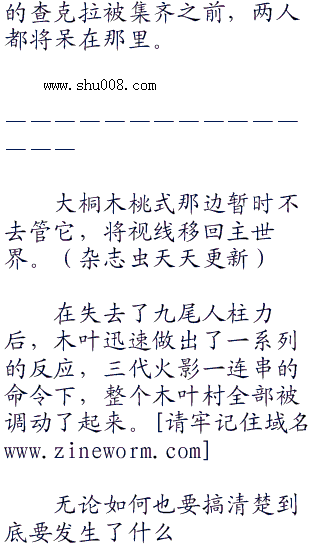 的查克拉被集齐之前，两人
都将呆在那里。
www.shu008.com
－－－－－－－－－－－－
－－－
大桐木桃式那边暂时不
去管它，将视线移回主世
界。（杂志虫天天更新）
在失去了九尾人柱力
后，木叶迅速做出了一系列
的反应，三代火影一连串的
命令下，整个木叶村全部被
调动了起来。[请牢记住域名
www.zineworm.com]
无论如何也要搞清楚到
底要发生了什么